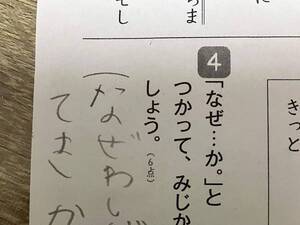 に
らま
てし
きっと
4
「なぜ…か。」と
つかって、みじか
しょう。(6点)
(なぜわし
てまか